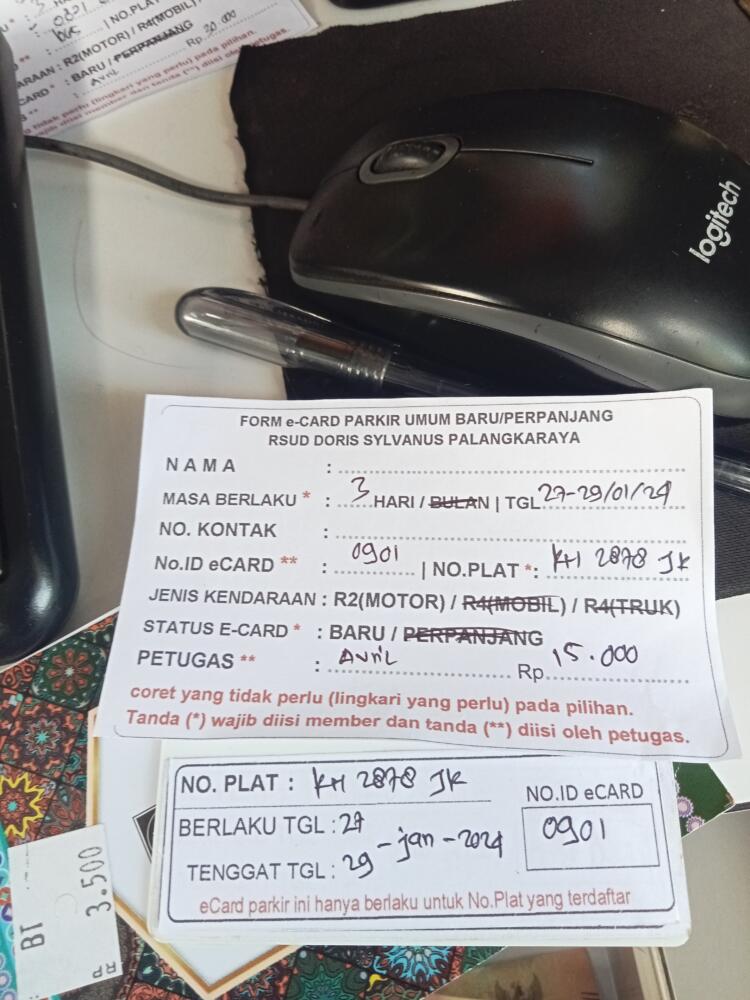 0821
| NO.PLAT
ARAAN : R2(MOTOR) / R4(MOBIL)
CARD * : BARU / PERPANJANG
Avril Rp 20.000
tidak perlu (lingkari yang perlu) pada pilihan.
wajib diisi member dan tanda (**) diisi oleh petugas.
logitech
FORM e-CARD PARKIR UMUM BARU/PERPANJANG
RSUD DORIS SYLVANUS PALANGKARAYA
NAMA :
MASA BERLAKU * : 3 HARI / BULAN | TGL 27-29/01/24
NO. KONTAK :
No.ID eCARD ** : 0901 | NO.PLAT *: KH 2878 JK
JENIS KENDARAAN : R2(MOTOR) / R4(MOBIL) / R4(TRUK)
STATUS E-CARD * : BARU / PERPANJANG
PETUGAS ** : Avril Rp 15.000
coret yang tidak perlu (lingkari yang perlu) pada pilihan.
Tanda (*) wajib diisi member dan tanda (**) diisi oleh petugas.
NO. PLAT : KH 2878 JK
NO.ID eCARD
BERLAKU TGL : 27
0901
TENGGAT TGL : 29 -jan-2024
eCard parkir ini hanya berlaku untuk No.Plat yang terdaftar
BT
3.500